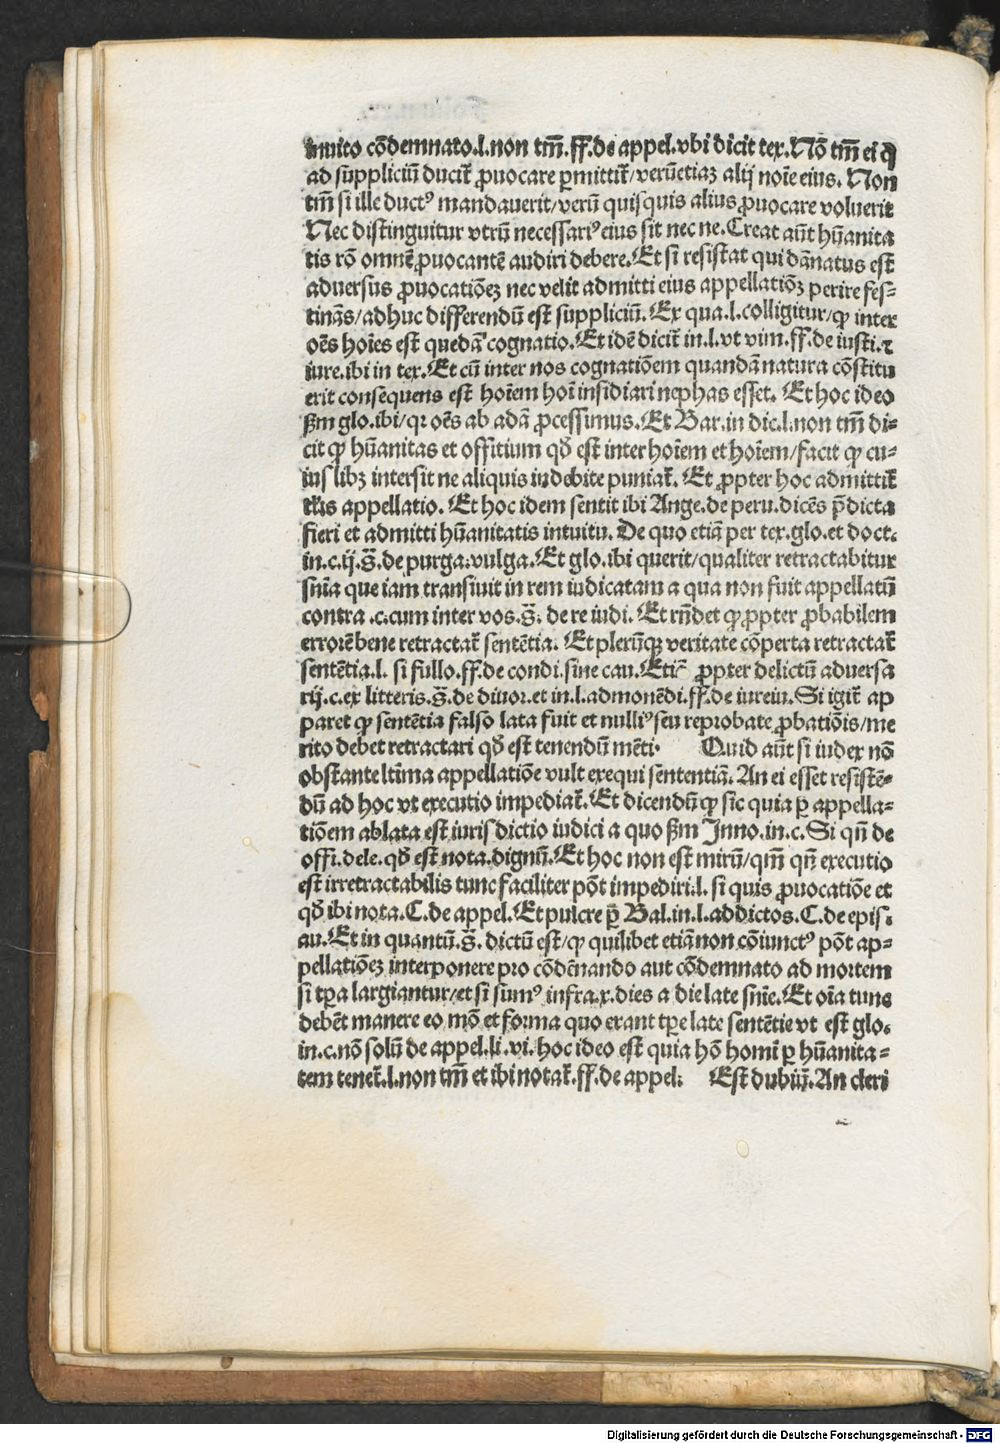 inuito cōdemnato.l.non tm̄.ff.de appel.vbi dicit tex.Nō tm̄ ei q̄
ad suppliciū ducit᷑ ꝓuocare ꝑmittit᷑/verūetiaꝫ alij noīe eius. Non
tm̄ si ille ductꝰ mandauerit/verū quisquis alius ꝓuocare voluerit
Nec distinguitur vtrū necessariꝰ eius sit nec ne.Creat aūt hūanita
tis rō omnē ꝓuocantē audiri debere.Et si resistat qui dānatus est
aduersus ꝓuocatiōeꝫ nec velit admitti eius appellatiōꝫ perire fes⸗
tinās/adhuc differendū est suppliciū. Ex qua.l.colligitur/ꝙ inter
oēs hoīes est quedā cognatio.Et idē dicit᷑ in.l.vt vim.ff.de iusti.⁊
iure.ibi in tex.Et cū inter nos cognatiōem quandā natura cōstitu
erit consequens est hoīem hoī insidiari nephas esset. Et hoc ideo
ẜm glo.ibi/qꝛ oēs ab adā ꝓcessimus. Et Bar.in dic.l.non tm̄ di⸗
cit ꝙ hūanitas et offitium qd̄ est inter hoīem et hoīem/facit ꝙ cu⸗
ius libꝫ intersit ne aliquis indebite puniat᷑. Et ꝓpter hoc admittit᷑
tl̄is appellatio. Et hoc idem sentit ibi Ange.de peru.dicēs p̄dicta
fieri et admitti hūanitatis intuitu. De quo etiā per tex.glo.et doct.
in.c.ij.s̄.de purga.vulga.Et glo.ibi querit/qualiter retractabitur
snīa que iam transiuit in rem iudicatam a qua non fuit appellatū
contra .c.cum inter vos.s̄. de re iudi. Et rn̄det ꝙ ꝓpter ꝓbabilem
errorē bene retractat᷑ sentētia. Et plerūqꝫ veritate cōperta retractat᷑
sentētia.l. si fullo.ff.de condi.sine cau.Eti᷑ ꝓpter delictū aduersa
rij.c.ex litteris.s̄.de diuor.et in.l.admonēdi.ff.de iureiu.Si igit᷑ ap
paret ꝙ sentētia falso lata fuit et nulliꝰ seu reprobate ꝓbatiōis/me
rito debet retractari qd̄ est tenendū mēti. Quid aūt si iudex nō
obstante ltīma appellatiōe vult exequi sententiā. An ei esset resistē⸗
dū ad hoc vt executio impediat᷑. Et dicendū ꝙ sic quia ꝑ appella⸗
tiōem ablata est iurisdictio iudici a quo ẜm Inno.in.c.Si qn̄ de
offi.dele.qd̄ est nota.dignū.Et hoc non est mirū/qm̄ qn̄ executio
est irretractabilis tunc faciliter pōt impediri.l. si quis ꝓuocatiōe et
qd̄ ibi nota.C.de appel.Et pulcre ꝑ Bal.in.l.addictos.C.de epis.
au.Et in quantū.s̄. dictū est/ꝙ quilibet etiā non cōiunctꝰ pōt ap⸗
pellatiōeꝫ interponere pro cōdēnando aut cōdemnato ad mortem
si tꝑa largiantur/et si sumꝰ infra.x.dies a die late snīe.Et oīa tunc
debēt manere eo mō et forma quo erant tꝑe late sentētie vt est glo.
in.c.nō solū de appel.li.vi.hoc ideo est quia hō homī ꝑ hūanita⸗
tem tenet᷑.l.non tm̄ et ibi notat᷑.ff.de appel. Est dubiū.An cleri
Digitalisierung gefördert durch die Deutsche Forschungsgemeinschaft - DFG